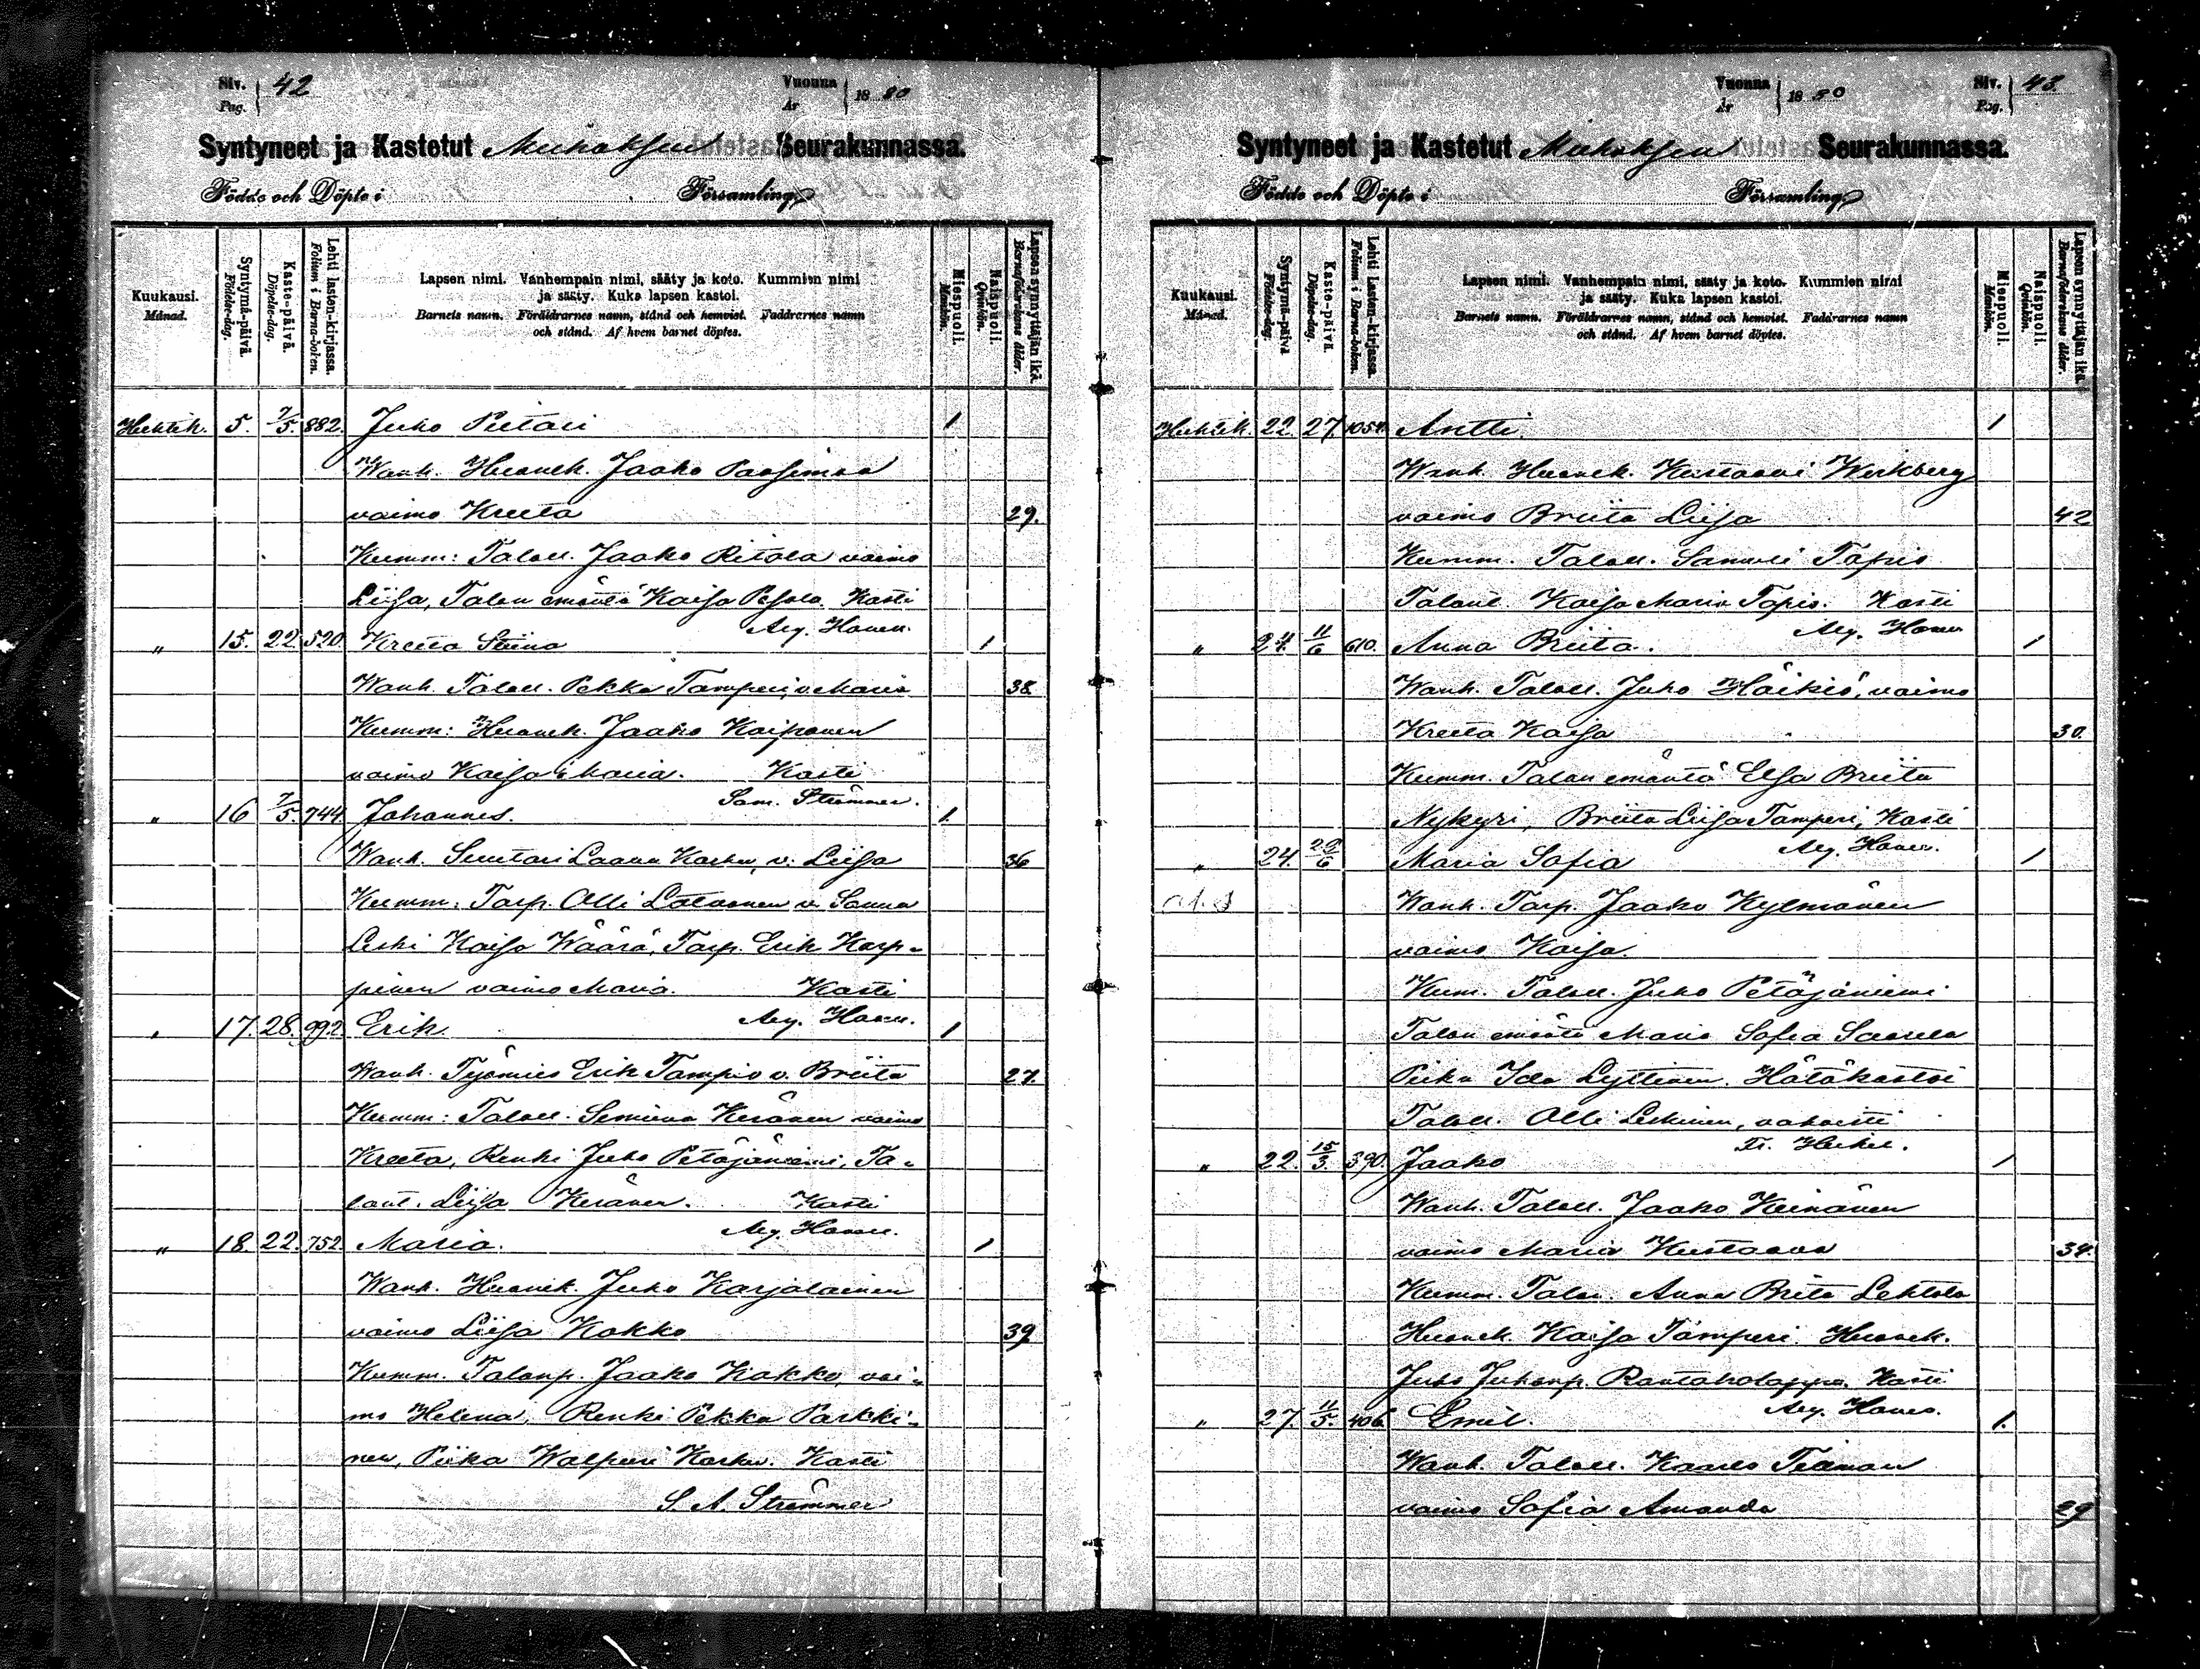 Siv. Pag. 42
Vuonna År 1880
Syntyneet ja Kastetut Muhoksen Seurakunnassa.
Födde och Döpte i Församling
Kuukausi. Månad.
Syntymä-päivä. Födelse-dag.
Kaste-päivä. Döpelse-dag.
Lehti lasten-kirjassa. Folium i Barna-boken.
Lapsen nimi. Vanhempain nimi, sääty ja koto. Kummien nimi
ja sääty. Kuka lapsen kastoi.
Barnets namn. Föräldrarnes namn, stånd och hemvist. Faddrarnes namn
och stånd. Af hvem barnet döptes.
Miespuoli. Mankön.
Naispuoli. Qvinkön.
Lapsen synnyttäjän ikä. Barnaföderskans ålder.
Huhtik. 5. 7/5. 882. Juho Pietari 1
Wanh. Huonek. Jaako
vaimo Kreeta 29.
Kumm: Taloll. Jaako Ritola vaimo
Liisa, Talon emäntä Kaisa Kasti
" 15. 22. 520. Kreeta Stiina 1
Wanh. Taloll. Pekka Tamperi, v. Maria 38
Kumm: Huonek. Jaako Kaiponen
vaimo Kaisa Maria. Kasti
Sam. Strömmer.
" 16 7/5. 744. Johannes. 1.
Wanh. Suutari v. Liisa 36
Kumm: Torp. Olli Latvanen v. Sanna
Leski Kaisa Wäärä, Torp. Erik Karp-
pinen vaimo Maria. Kasti
" 17. 28. 992. Erik 1
Wanh. Työmies Erik Tampio v. Briita 27.
Kumm: Taloll. Keränen vaimo
Kreeta, Renki Juho Petäjäniemi, Ta-
lont. Liisa Keränen. Kasti
" 18. 22. 752. Maria. 1
Wanh. Huonek. Juho Karjalainen
vaimo Liisa Kokko 39
Kumm. Talonp. Jaako Kokko, vai-
mo Helena, Renki Pekka Parkki-
nen, Piika Walpuri Kasti
S. A. Strömmer
Siv. Pag. 43.
Vuonna År 1880
Syntyneet ja Kastetut Muhoksen Seurakunnassa.
Födde och Döpte i Församling
Kuukausi. Månad.
Syntymä-päivä Födelse-dag.
Kaste-päivä. Döpelse-dag.
Lehti Lasten-kirjassa. Folium i Barna-boken.
Lapsen nimi. Vanhempain nimi, sääty ja koto. Kummien nimi
ja sääty. Kuka lapsen kastoi.
Barnets namn. Föräldrarnes namn, stånd och hemvist. Faddrarnes namn
och stånd. Af hvem barnet döptes.
Miespuoli. Mankön.
Naispuoli. Qvinkön.
Lapsen synnyttäjän ikä. Barnaföderskans ålder.
Huhtik. 22. 27. Antti. 1
Wanh. Huonek. Kustaavi Werkberg
vaimo Briita Liisa 42
Kumm. Taloll. Samuli Tapio
Talont. Kaisa Maria Tapio. Kasti
" 24. 11/6 610. Anna Briita. 1
Wanh. Taloll. Juho Häikiö, vaimo
Kreeta Kaisa 30.
Kumm. Talon emäntä Elsa Briita
Nykyri, Briita Liisa Tamperi, Kasti
" 24. Maria Sofia 1
Wanh. Torp. Jaako Kylmänen
vaimo Kaisa.
Kum. Taloll. Juho Petäjäniemi
Talon emäntä Maria Sofia Saarela
Piika Ida Lyttinen. Hätäkastoi
Taloll. Olli Leskinen, vahvisti
Fr. Heikel.
" 22. 15/3. 390. Jaako 1
Wanh. Taloll. Jaako Keinänen
vaimo Maria Kustaava 34.
Kumm. Talon. Anna Brita Lehtola
Huonek. Kaisa Tamperi. Huonek.
Juho Juhonp. Rautaholappa. Kasti
" 27. 11/5. 406. Emil. 1.
Wanh. Taloll. Kaarlo
vaimo Sofia Amanda 29